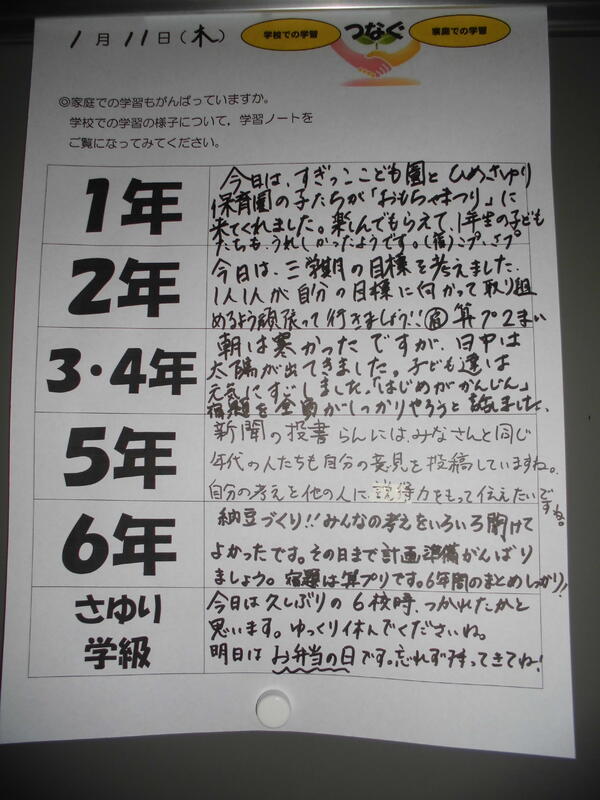 1月11日(木)
学校での学習 つなぐ 家庭での学習
◎家庭での学習もがんばっていますか。
学校での学習の様子について,学習ノートを
ご覧になってみてください。
1年
今日は、すぎっここども園とひめさゆり
保育園の子たちが「おもちゃまつり」に
来てくれました。楽しんでもらえて、1年生の子ども
たちも、うれしかったようです。(宿)こプ、さプ
2年
今日は、三学期の目標を考えました。
1人1人が自分の目標に向かって取り組
めるよう頑張って行きましょう!! 宿 算プ2まい
3・4年
朝は寒かったですが、日中は
太陽が出てきました。子ども達は
元気にすごしました。「はじめがかんじん」
宿題を全員がしっかりやろうと話しました。
5年
新聞の投書らんには、みなさんと同じ
年代の人たちも自分の意見を投稿していますね。
自分の考えを他の人に説得力をもって伝えたいですね。
6年
納豆づくり!!みんなの考えをいろいろ聞けて
よかったです。その日まで計画準備がんばり
ましょう。宿題は算プリです。6年間のまとめしっかり!
さゆり
学級
今日は久しぶりの6校時、つかれたかと
思います。ゆっくり休んでくださいね。
明日はお弁当の日です。忘れず持ってきてね!